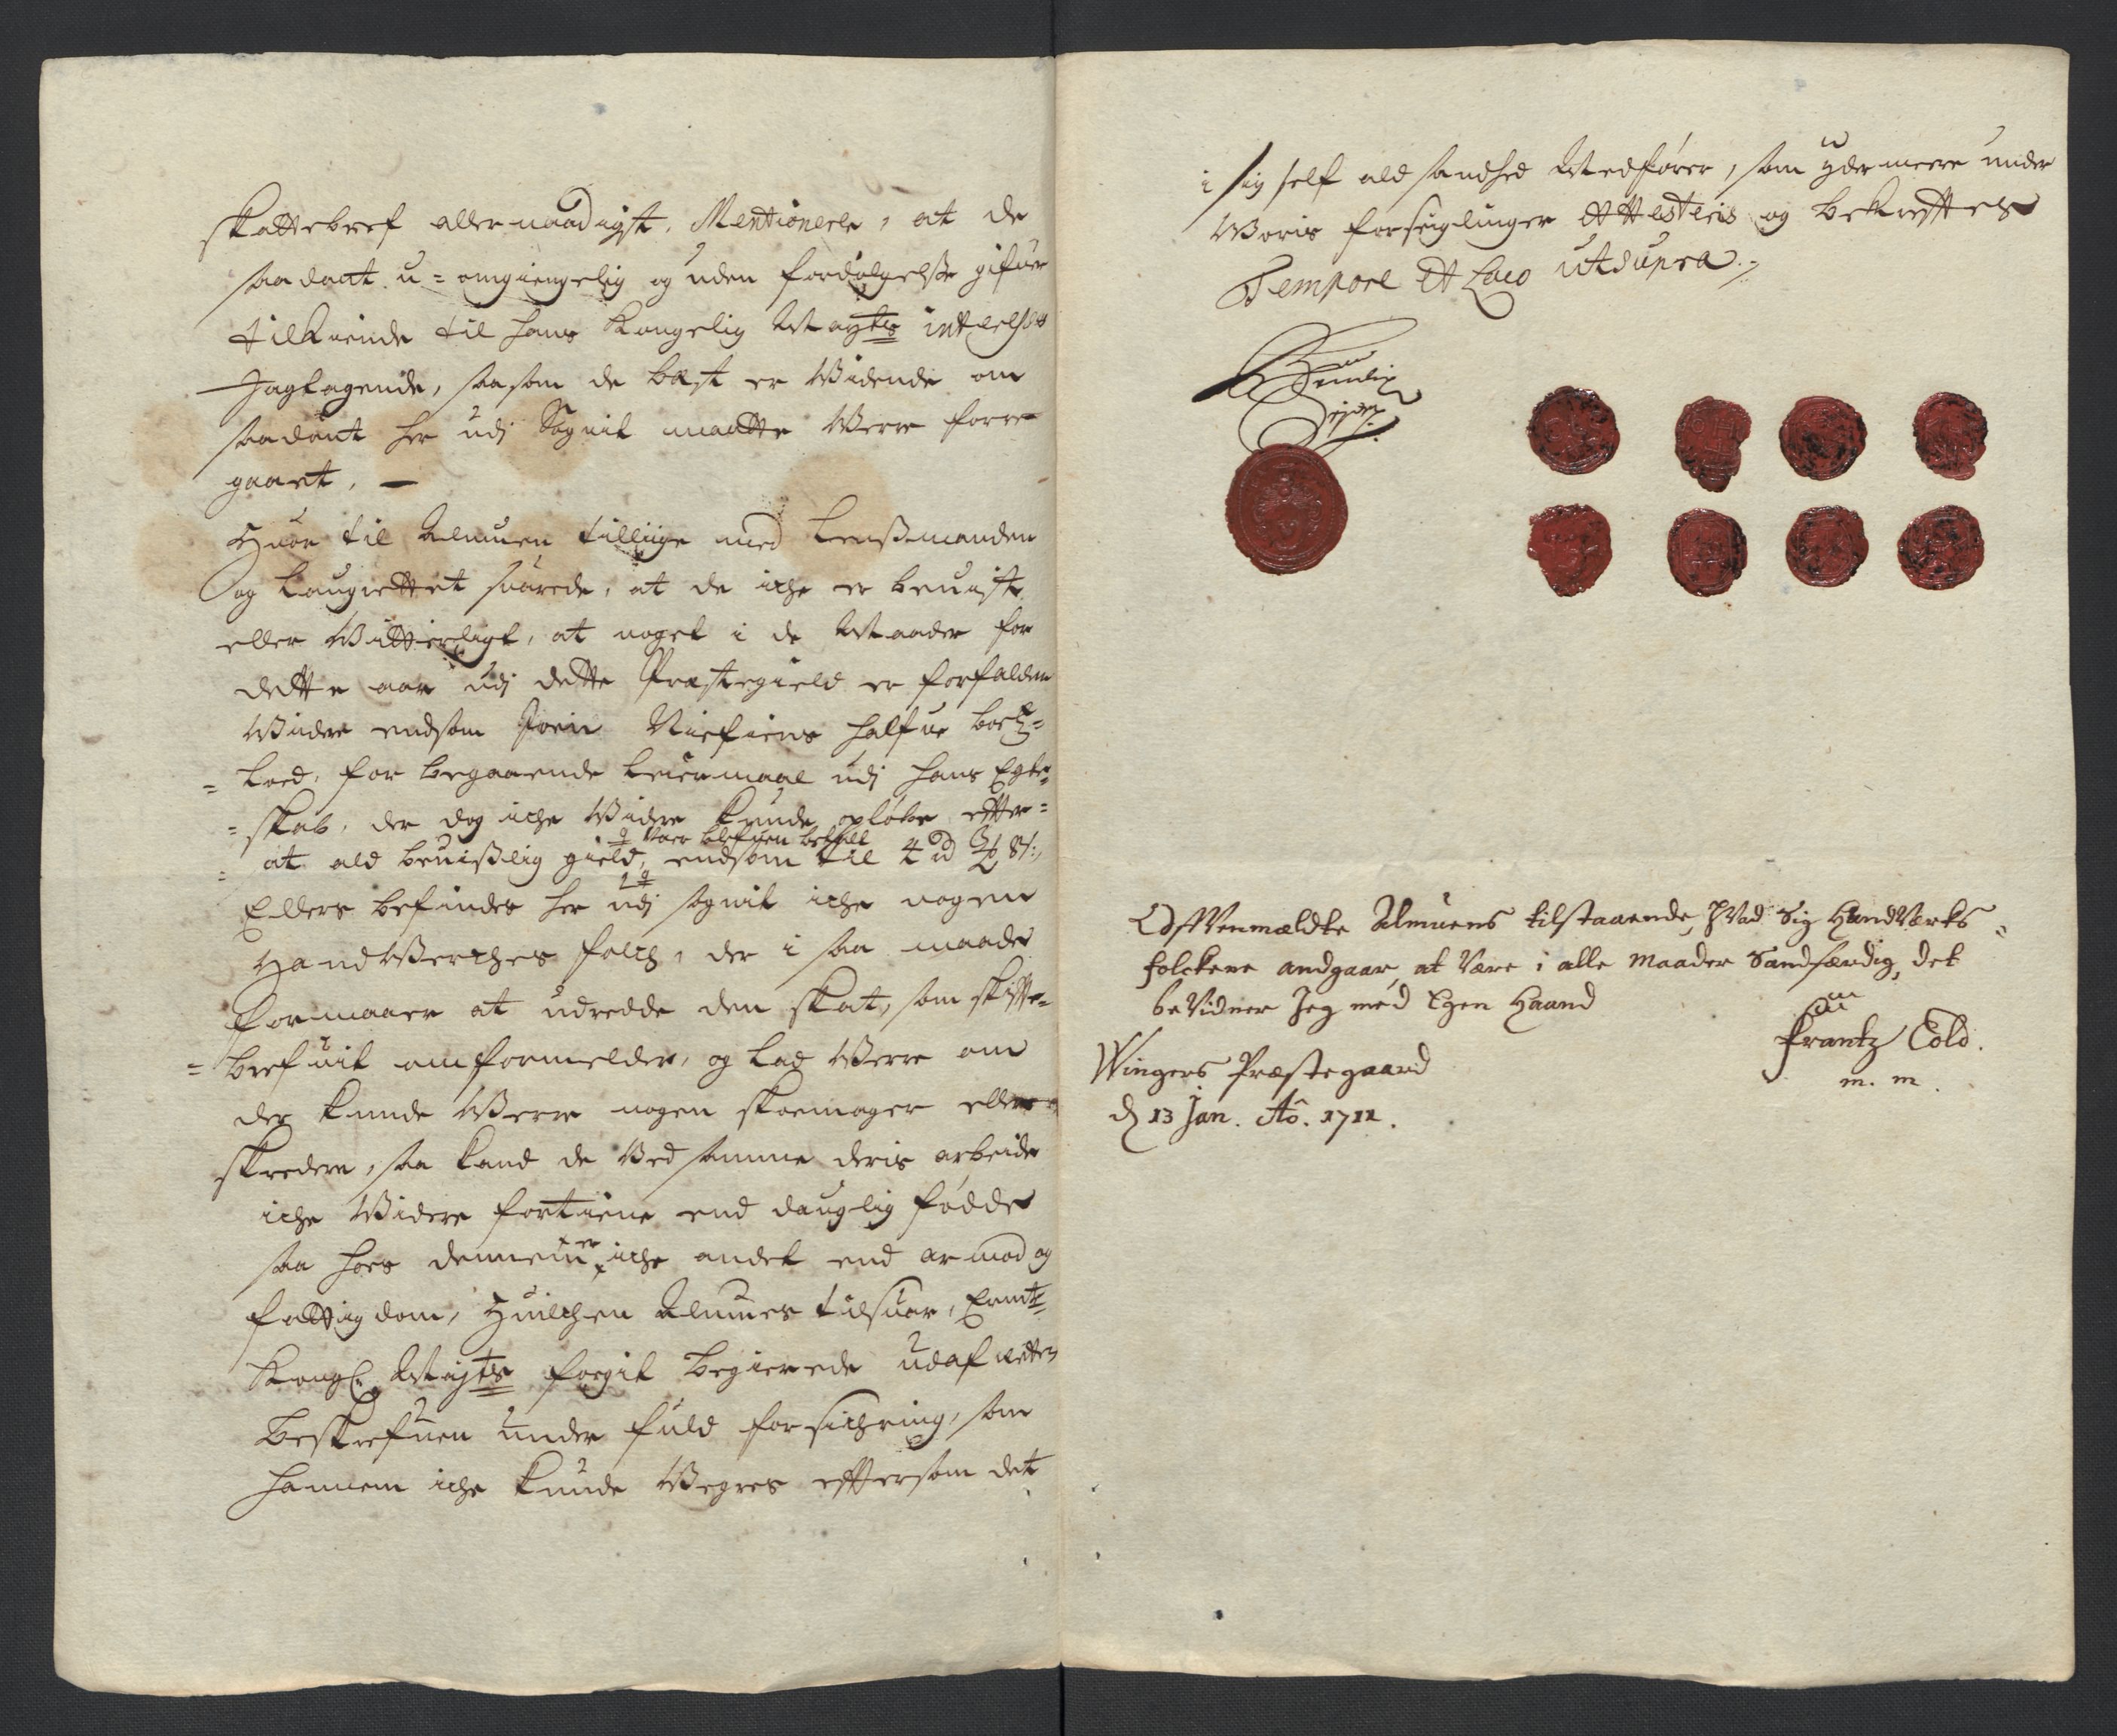 skattebref allernaadigst. Mentionerer, at de
saadant u=omgiengelig og uden fordølgelsse gifuer
tilkiende til hans Kongelig Mayts interesse
Jagtagende, saasom de best er Widende om
saadant her udj Sognit maatte Werre forre-
gaaet. —
Huor til Almuen tillige med Lensmanden
og Laugrettet suarede, at de iche er beuist
eller Witterligt, at noget i de Maader for
dette aar udj dette Præstegield er forfalden
Widere endsom Joen halfue boes=
=Lod, for begaaende Leiermaal udj hans Egte=
=skab, der dog iche Widere kunde opløbe effter=
= at ald beuislig gield, endsom til
Ellers befindes her udj sognit iche nogen
HandWerches folch, der i saa maader
formaaer at udredde den skat, som skatte=
=brefuit omformelder, og Lad Werre om
der kunde Werre nogen skoemager eller
skreder, saa kand de Ved samme deris arbeide
iche Widere fortiene end dauglig føde
saa hoes dennem er iche andet end armod og
fattigdom, Huilchen Almues tilsuar,
Kongl. Mayts fogit begierede udaf retten
beskrefuen under fuld forsichring, som
hannem iche kunde Wegres effter som det
i sig self ald sandhed Medfører, som ydermeere under
Woris forseiglinger Attesteris og bekrefftes
Tempore et Loco ut supra.
Offvenmældte Almuens tilstaaende, hvad Sig Handværks=
folckene andgaar, at være i alle Maader Sandfærdig, det
beVidner Jeg med Egen Haand
Frantz Cold.
m. m.
Wingers Præstegaard
d 13 Jan. Ao. 1712.